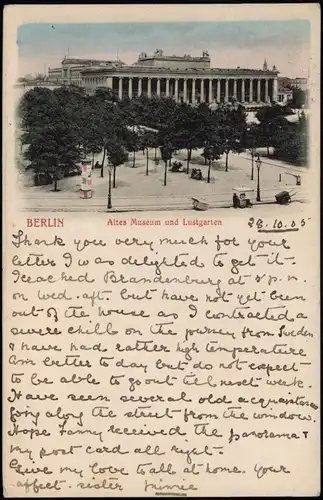 BERLIN Altes Museum und Lustgarten 28.10.05
Thank you very much for your
letter I was delighted to get it.
I reached Brandenburg at 8 p.m.
on Wed. aft. but have not yet been
out of the house as I contracted a
severe chill on the journey from Sweden
& have had rather high temperature
Am better to day but do not expect
to be able to go out till next week.
Have seen several old acquaintances
going along the street from the window.
Hope Fanny received the panorama &
my post card all right.
Give my love to all at home. your
affect. sister Minnie